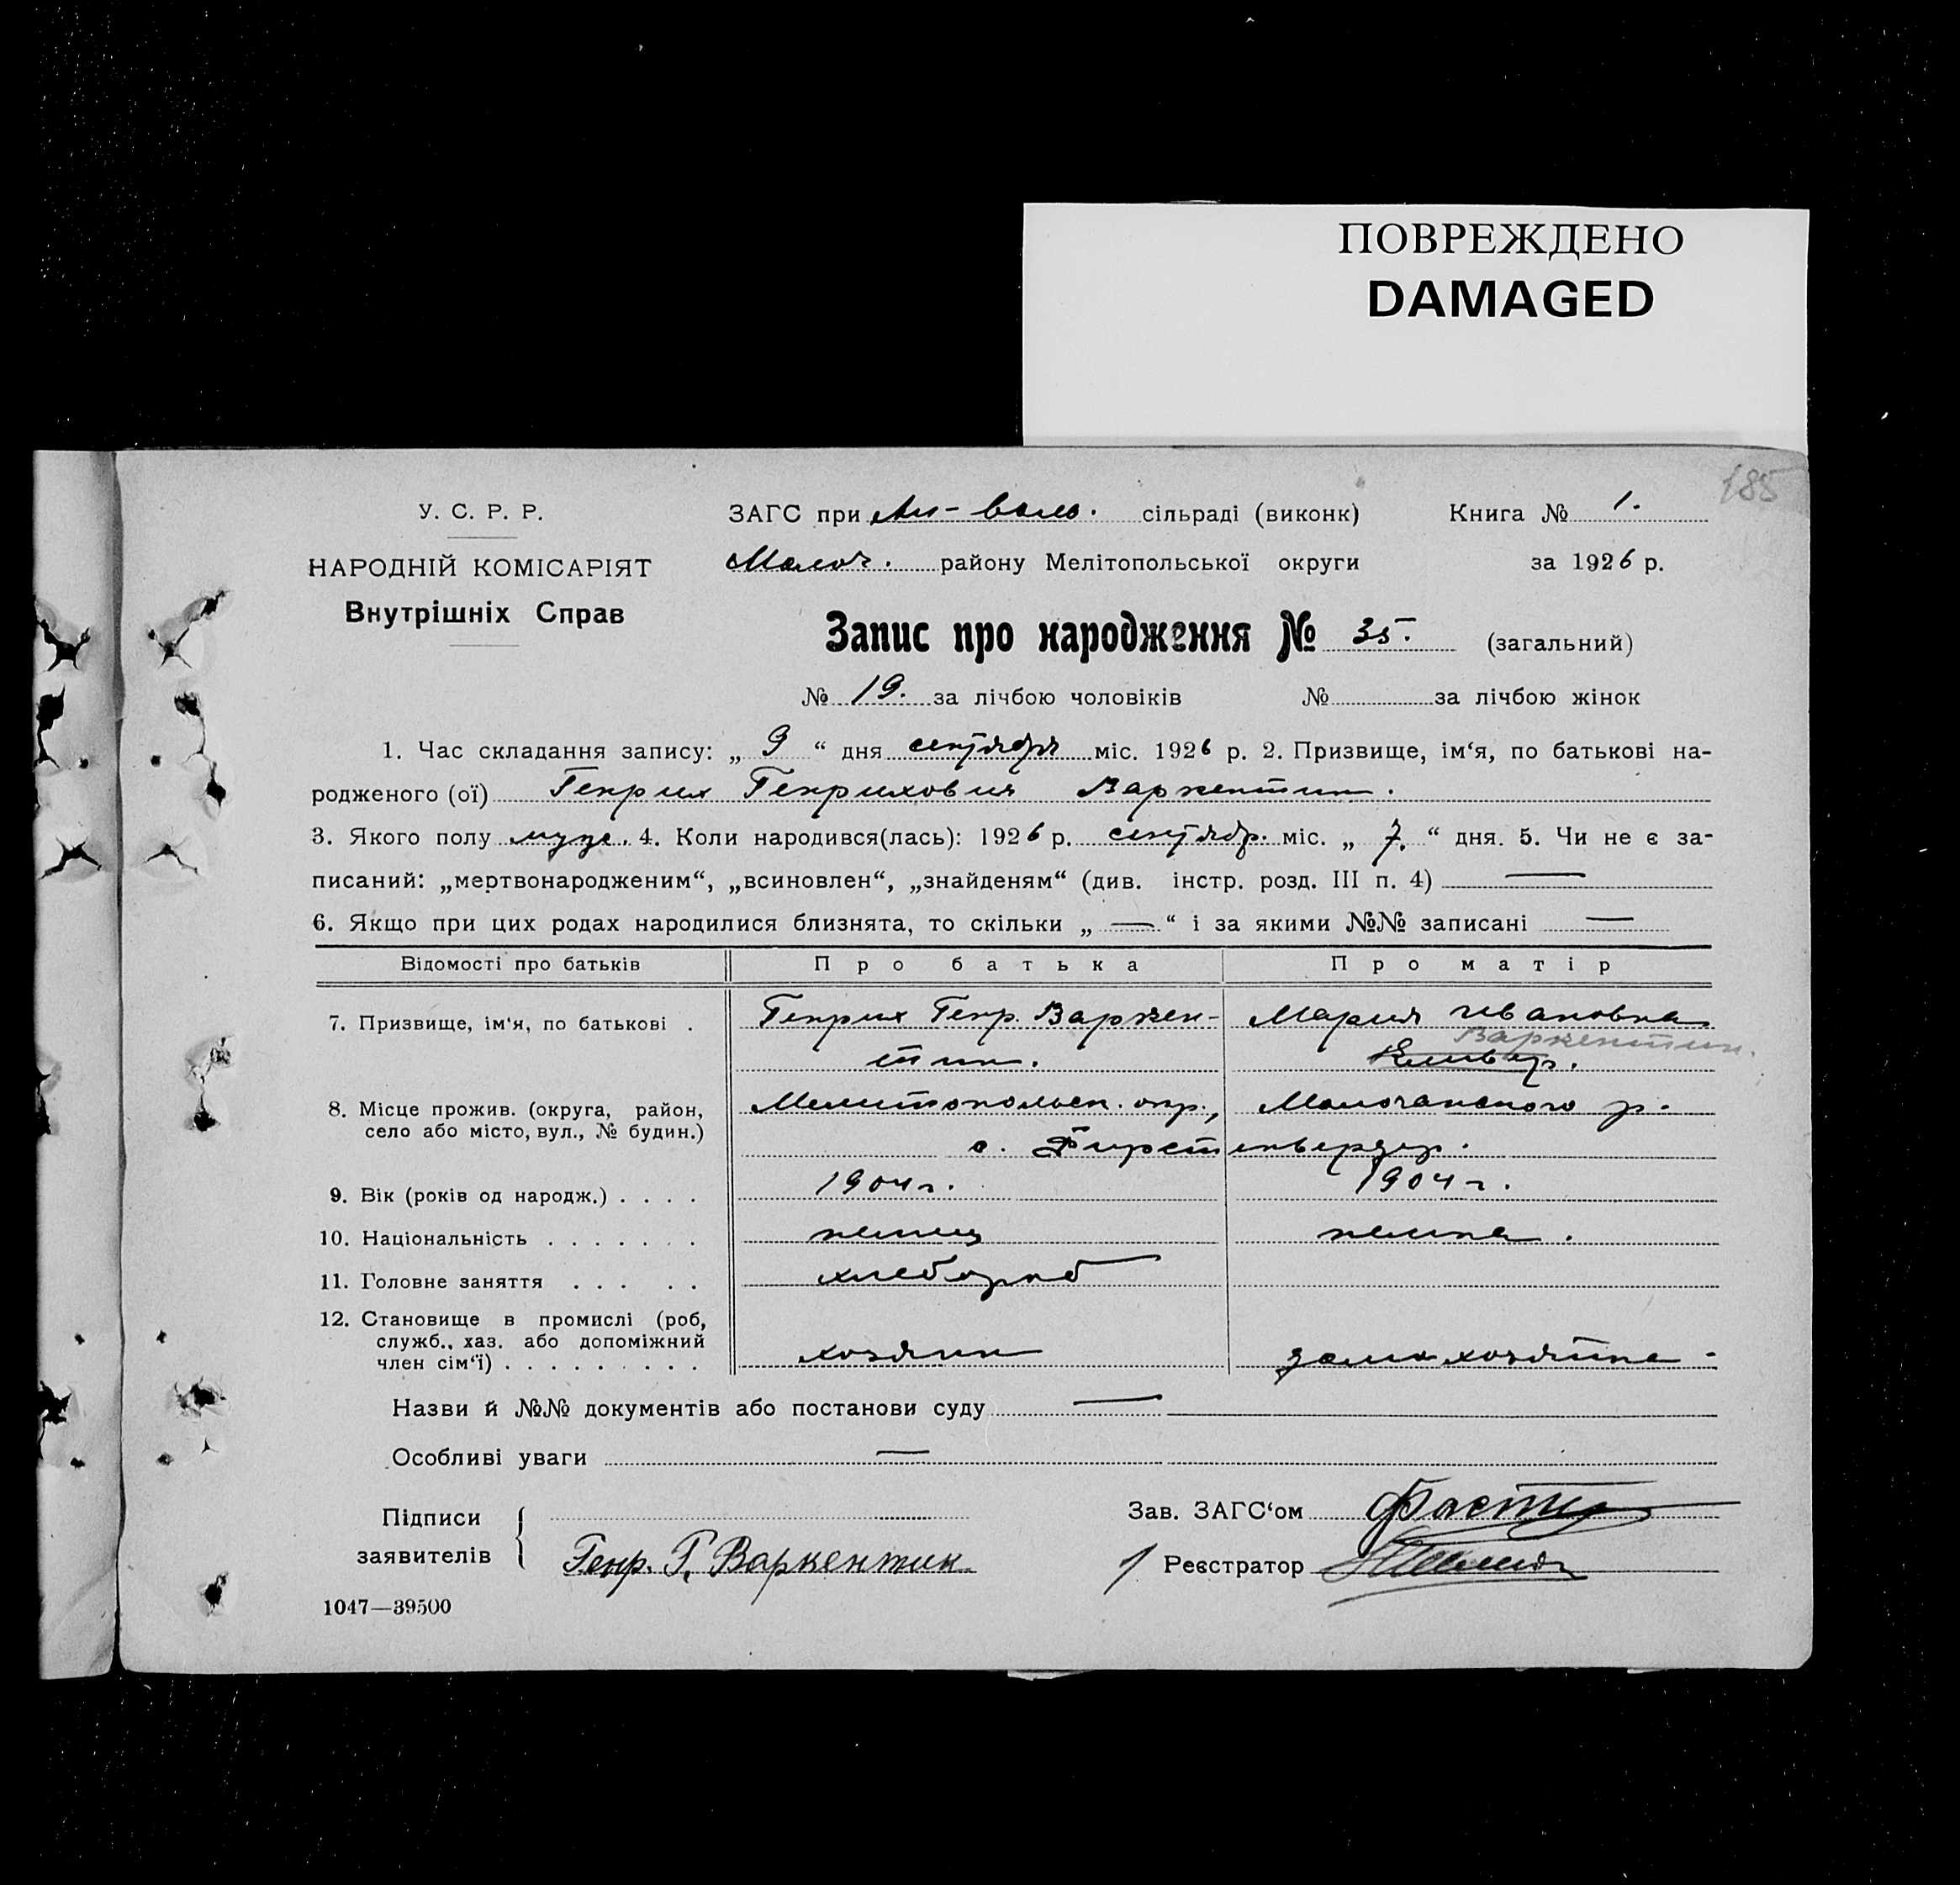 ПОВРЕЖДЕНО
DAMAGED
185
У. С. Р. Р.
НАРОДНІЙ КОМІСАРІЯТ
Внутрішніх Справ
ЗАГС при сільраді (виконк) Книга № 1.
Молоч. району Мелітопольської округи за 1926 р.
Запис про народження № 35. (загальний)
№ 19. за лічбою чоловіків № за лічбою жінок
1. Час складання запису: „ 9 “ дня сентября міс. 1926 р. 2. Призвище, ім‘я, по батькові на-
родженого (ої) Генрих Генрихович Варкентин.
3. Якого полу муж. 4. Коли народився(лась): 1926 р. сентябр. міс. „ 7. “ дня. 5. Чи не є за-
писаний: „мертвонародженим“, „всиновлен“, „знайденям“ (див. інстр. розд. III п. 4) —
6. Якщо при цих родах народилися близнята, то скільки „ — “ і за якими №№ записані —
Відомості про батьків Про батька Про матір
7. Призвище, ім‘я, по батькові . Генрих Генр. Варкен- Мария Ивановна
тин. Варкентин.
8. Місце прожив. (округа, район, Мелитопольск. окр., Молочанского р.
село або місто, вул., № будин.) с. Фирстенвердер.
9. Вік (років од народж.) . . . . 1904 г. 1904 г.
10. Національність . . . . . . . немец немка.
11. Головне заняття . . . . . хлебороб
12. Становище в промислі (роб,
служб., хаз. або допоміжний
член сім‘ї) . . . . . . . . . хозяин хозяйка
Назви й №№ документів або постанови суду —
Особливі уваги —
Підписи Зав. ЗАГС‘ом
заявителів Генр. Г. Варкентин Реєстратор
1047—39500